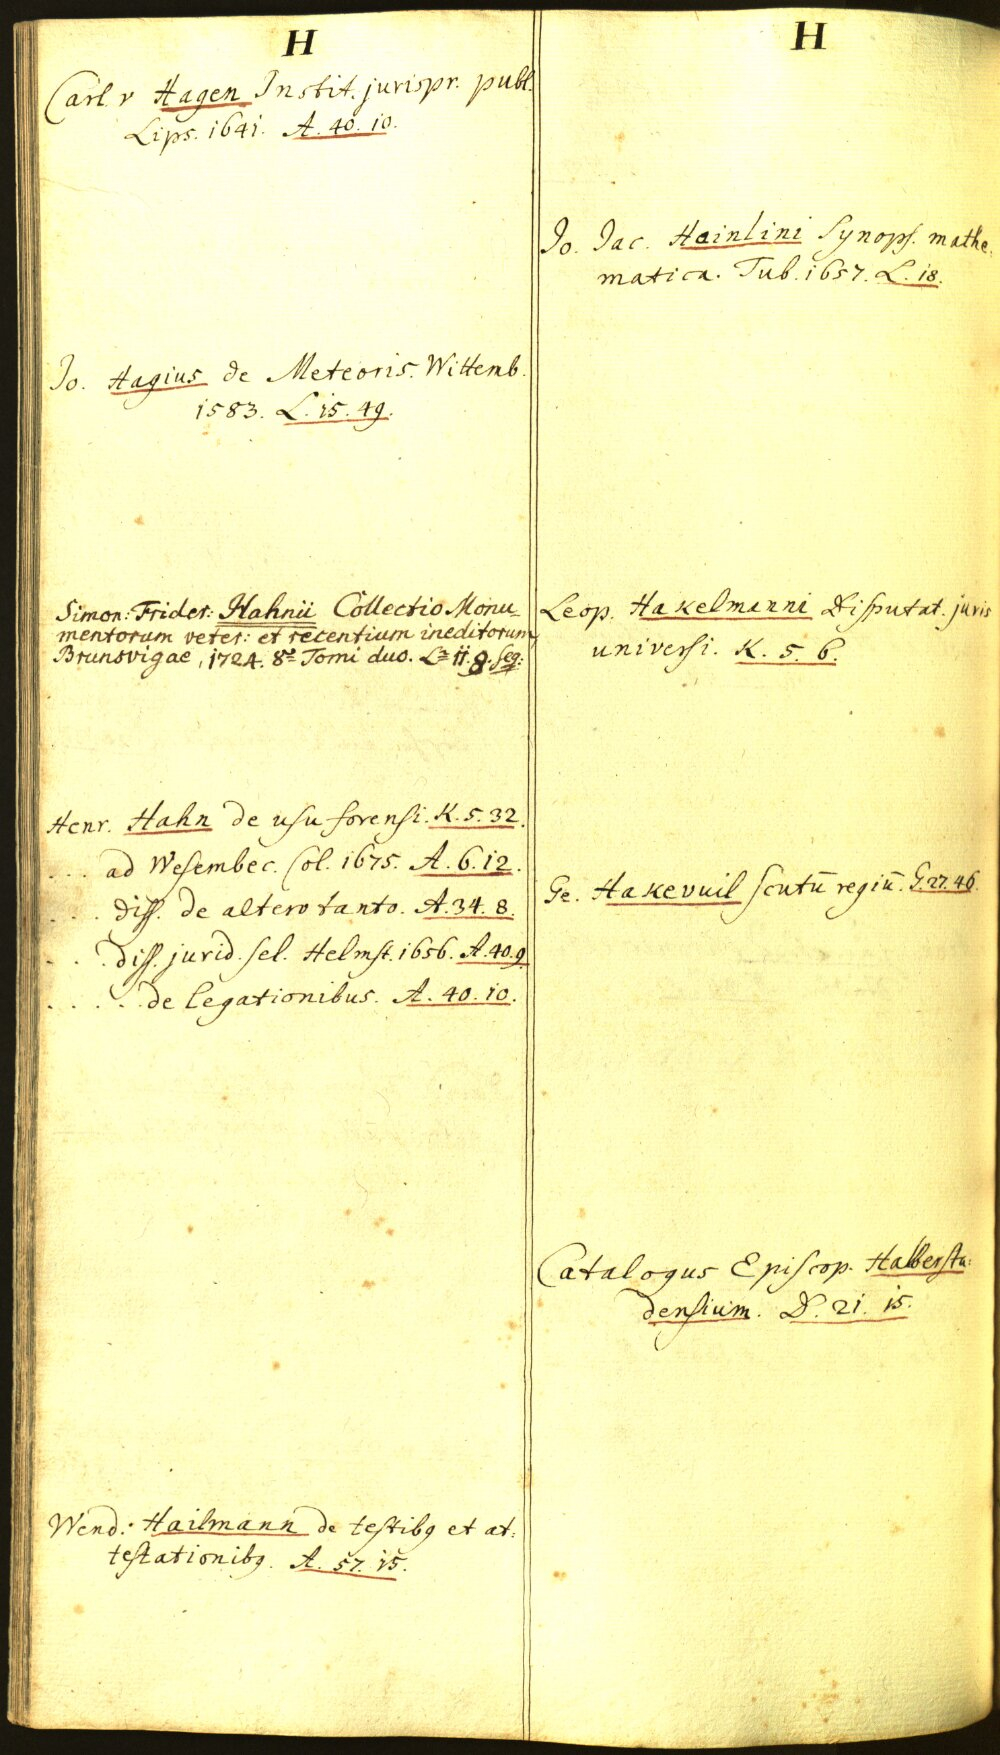 H
Carl v Hagen Instit. jurispr. publ.
Lips. 1641. A. 40. 10.
Jo. Hagius de Meteoris. Wittemb.
1583. L. 15. 49.
Simon: Frider: Hahnii Collectio Monu_
mentorum veter: et recentium ineditorum
Brunsvigae, 1724. 8º Tomi duo. L. 11. 8. seq:
Henr. Hahn de usu forensi. K. 5. 32.
... ad Wesembec. Col. 1675. A. 6. 12.
.... diss. de altero tanto. A. 34. 8.
... diss. jurid. sel. Helmst. 1656. A. 40. 9
..... de legationibus. A. 40. 10.
Wend: Hailmann de testibꝯ et at:
testationibꝯ. A. 57. 15.
H
Jo. Jac. Hainlini Synops. mathe:
matica. Tub. 1657. L. 18.
Leop. Hakelmanni Disputat. juris
universi. K. 5. 6.
Ge. Hakevuil scutū regiū. G. 27. 46.
Catalogus Episcop. Halbersta:
densium. D. 21. 15.